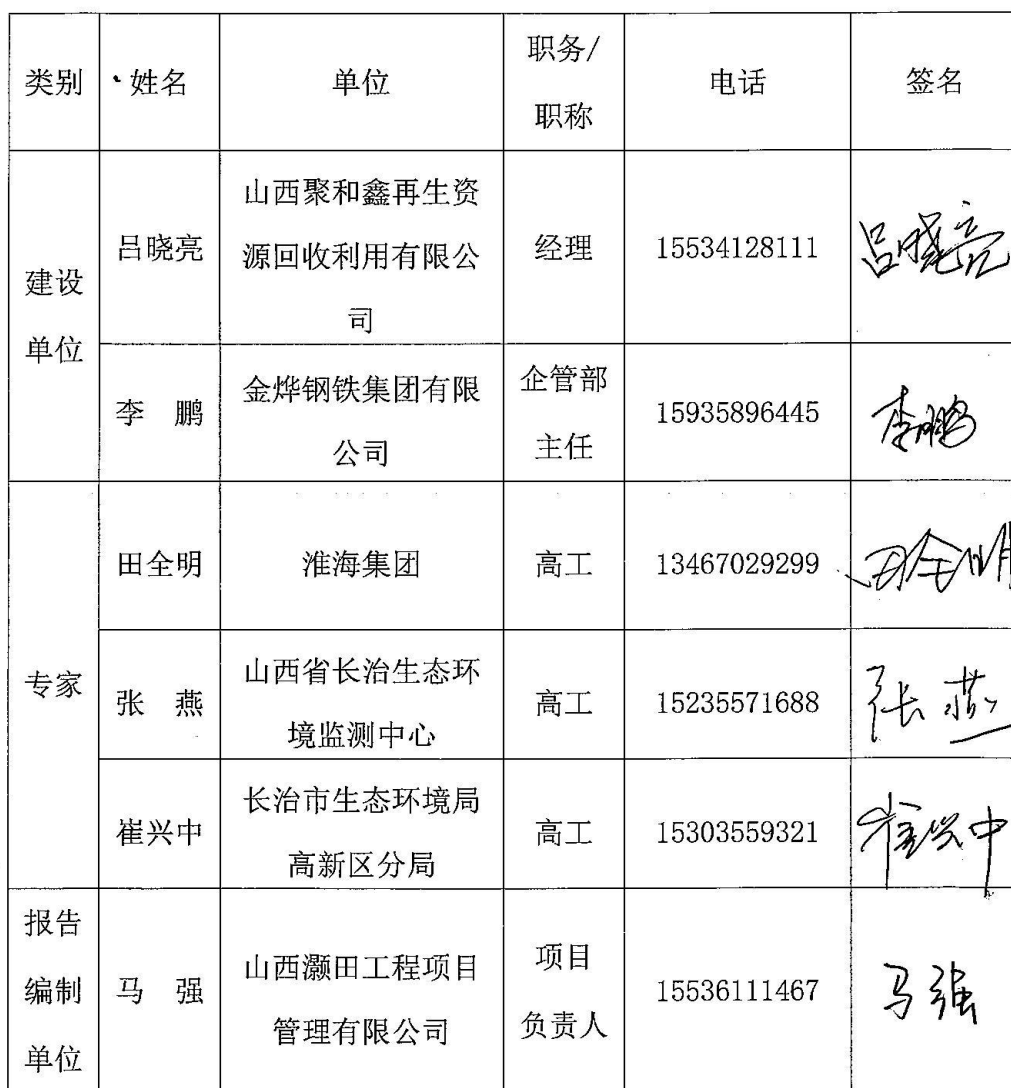 类别 姓名 单位 职务/职称 电话 签名
建设单位 吕晓亮 山西聚和鑫再生资源回收利用有限公司 经理 15534128111 吕晓亮
李 鹏 金烨钢铁集团有限公司 企管部主任 15935896445 李鹏
专家 田全明 淮海集团 高工 13467029299 田全明
张 燕 山西省长治生态环境监测中心 高工 15235571688 张燕
崔兴中 长治市生态环境局高新区分局 高工 15303559321 崔兴中
报告编制单位 马 强 山西灏田工程项目管理有限公司 项目负责人 15536111467 马强